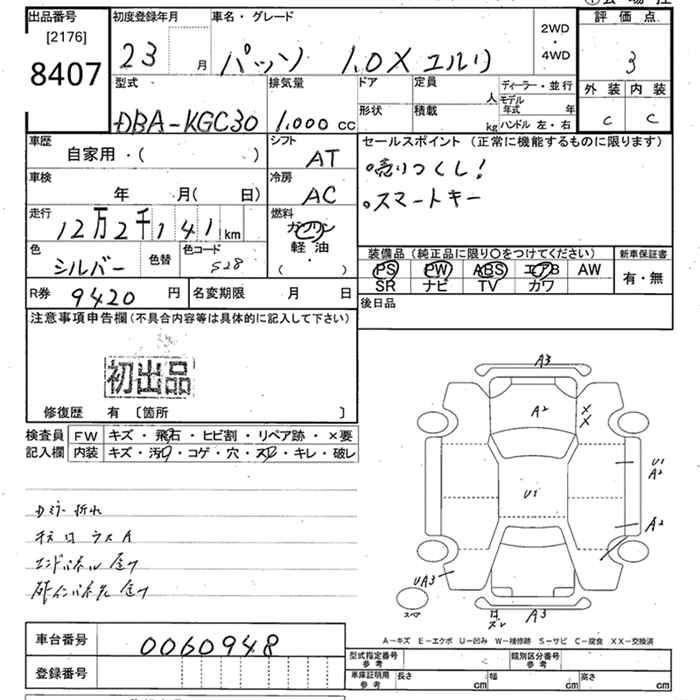 出品番号 初度登録年月 車名・グレード 評価点
[2176] 2WD
8407 23 月 パッソ 1.0X ・ 3
4WD
型式 排気量 ドア 定員 ディーラー・並行 外装 内装
人 モデル年式 年
DBA-KGC30 1.000 cc 形状 積載 kg ハンドル 左・右 C C
車歴 シフト セールスポイント (正常に機能するものに限ります)
自家用・( ) AT 売りつくし!
車検 冷房 スマートキー
年 月( 日) AC
走行 燃料
12万2千141km ガソリン
色 色替 色コード 軽・油 装備品(純正品に限り○をつけてください) 新車保証書
シルバー S28 ( ・ ) PS PW ABS エアB AW 有・無
R券 9420 円 名変期限 月 日 SR ナビ TV カワ
注意事項申告欄(不具合内容等は具体的に記入して下さい) 後日品
初出品
修復歴 有 〔箇所 〕
検査員 FW キズ・飛石・ヒビ割・リペア跡・×要
記入欄 内装 キズ・汚れ・コゲ・穴・スレ・キレ・破レ
A3
A2 X
X
U1
A2
U1
A2
UA3
スペア
A3
A-キズ E-エクボ U-凹み W-補修跡 S-サビ C-腐食 XX-交換済
車台番号 0060948 型式指定番号 参考 類別区分番号 参考
登録番号 車庫証明用 参考 長さ cm 幅 cm 高さ cm